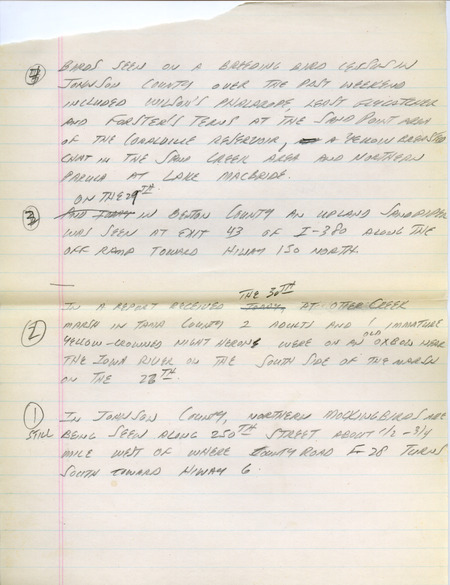 ④ BIRDS SEEN ON A BREEDING BIRD CENSUS IN
JOHNSON COUNTY OVER THE PAST WEEKEND
INCLUDED WILSON'S PHALAROPE, LEAST FLYCATCHER
AND FORSTER'S TERNS AT THE SAND POINT AREA
OF THE CORALVILLE RESERVOIR, A YELLOW BREASTED
CHAT IN THE SAND CREEK AREA AND NORTHERN
PARULA AT LAKE MACBRIDE.
ON THE 29TH
③ AND IN BENTON COUNTY AN UPLAND SANDPIPER
WAS SEEN AT EXIT 43 OF I-380 ALONG THE
OFF RAMP TOWARD HIWAY 150 NORTH.
THE 30TH
IN A REPORT RECEIVED TODAY, AT OTTER CREEK
② MARSH IN TAMA COUNTY 2 ADULTS AND 1 IMMATURE
YELLOW-CROWNED NIGHT HERONS WERE ON AN OLD OXBOW NEAR
THE IOWA RIVER ON THE SOUTH SIDE OF THE MARSH
ON THE 28TH.
① IN JOHNSON COUNTY, NORTHERN MOCKINGBIRDS ARE
STILL BEING SEEN ALONG 250TH STREET ABOUT 1/2 - 3/4
MILE WEST OF WHERE COUNTY ROAD F-28 TURNS
SOUTH TOWARD HIWAY 6.